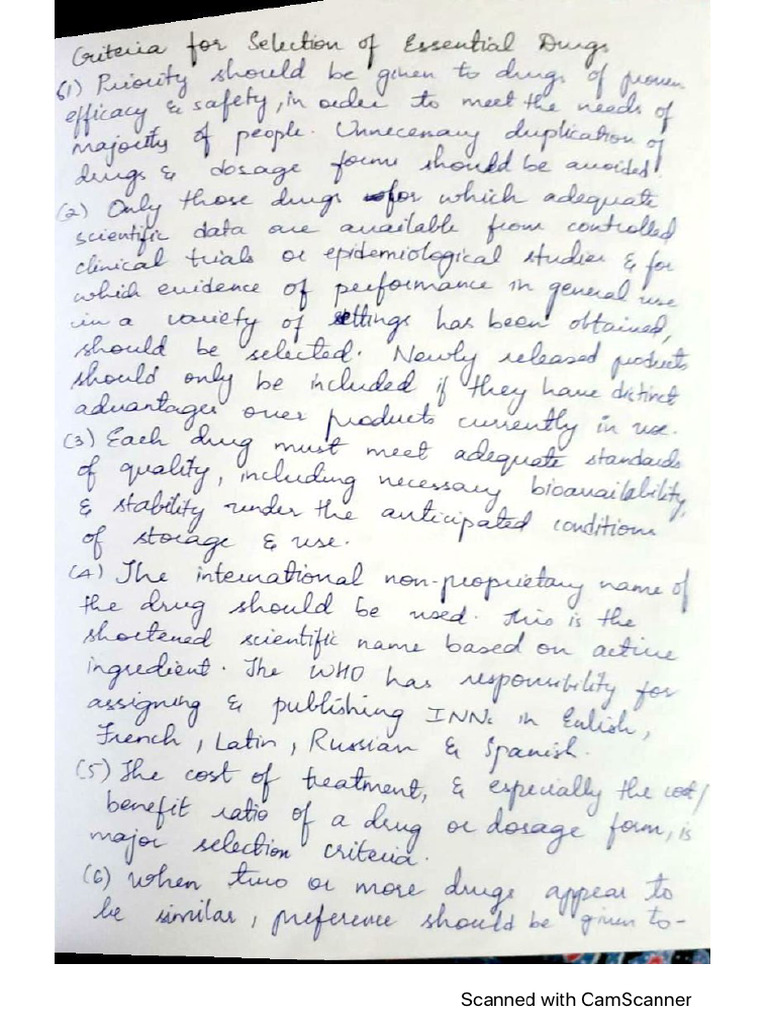 Criteria for Selection of Essential Drugs
(1) Priority should be given to drugs of proven
efficacy & safety, in order to meet the needs of
majority of people. Unnecessary duplication of
drugs & dosage forms should be avoided.
(2) Only those drugs for which adequate
scientific data are available from controlled
clinical trials or epidemiological studies & for
which evidence of performance in general use
in a variety of settings has been obtained,
should be selected. Newly released products
should only be included if they have distinct
advantages over products currently in use.
(3) Each drug must meet adequate standards
of quality, including necessary bioavailability,
& stability under the anticipated conditions
of storage & use.
(4) The international non-proprietary name of
the drug should be used. This is the
shortened scientific name based on active
ingredient. The WHO has responsibility for
assigning & publishing INNs in Enlish,
French, Latin, Russian & Spanish.
(5) The cost of treatment, & especially the cost/
benefit ratio of a drug or dosage form, is
major selection criteria.
(6) When two or more drugs appear to
be similar, preference should be given to-
Scanned with CamScanner